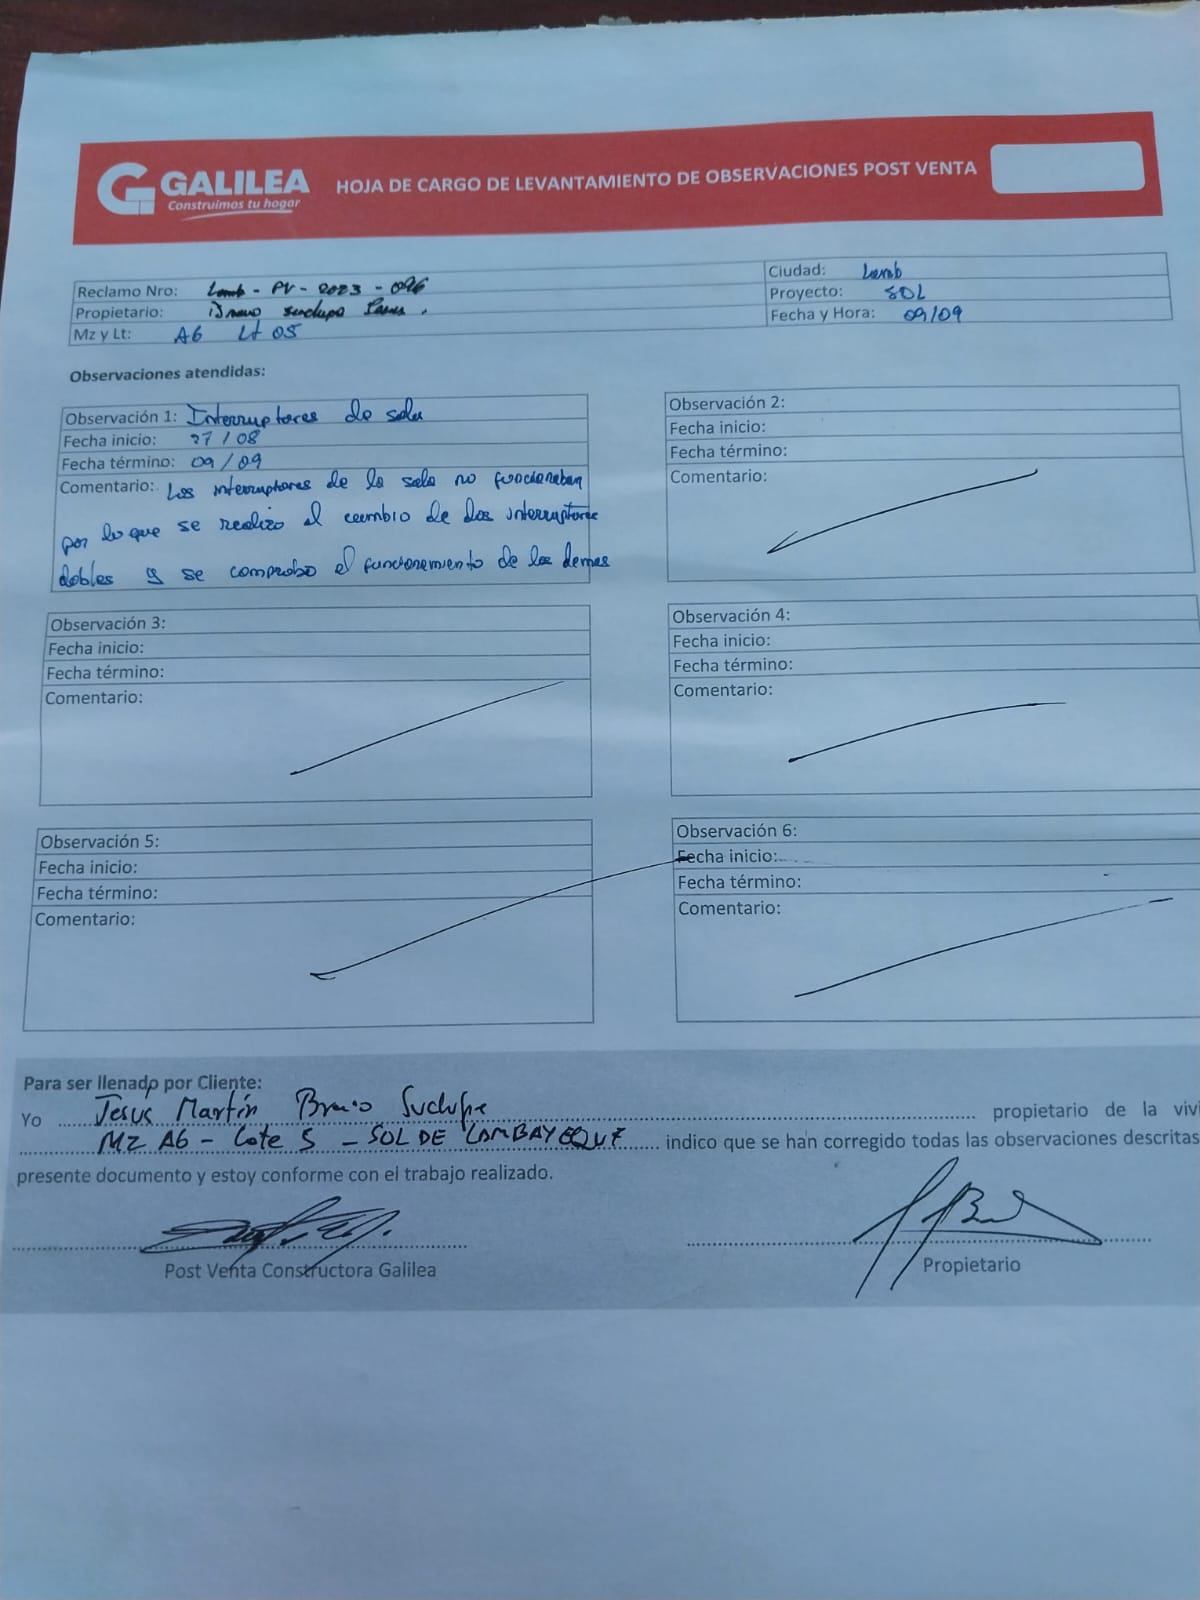 GALILEA
Construimos tu hogar
HOJA DE CARGO DE LEVANTAMIENTO DE OBSERVACIONES POST VENTA
Reclamo Nro: Lamb - PV - 2023 - 096
Propietario: Bravo Suclupe Jesus.
Mz y Lt: A6 Lt 05
Ciudad: Lamb
Proyecto: SDL
Fecha y Hora: 09/09
Observaciones atendidas:
Observación 1: Interruptores de sala
Fecha inicio: 27/08
Fecha término: 09/09
Comentario: Los interruptores de la sala no funcionaban
por lo que se realizo el cambio de dos interruptores
dobles y se comprobo el funcionamiento de los demas
Observación 2:
Fecha inicio:
Fecha término:
Comentario:
Observación 3:
Fecha inicio:
Fecha término:
Comentario:
Observación 4:
Fecha inicio:
Fecha término:
Comentario:
Observación 5:
Fecha inicio:
Fecha término:
Comentario:
Observación 6:
Fecha inicio:
Fecha término:
Comentario:
Para ser llenado por Cliente:
Yo Jesus Martín Bravo Suclupe propietario de la vivi
MZ A6 - Lote 5 - SOL DE LAMBAYEQUE indico que se han corregido todas las observaciones descritas
presente documento y estoy conforme con el trabajo realizado.
Post Venta Constructora Galilea
Propietario